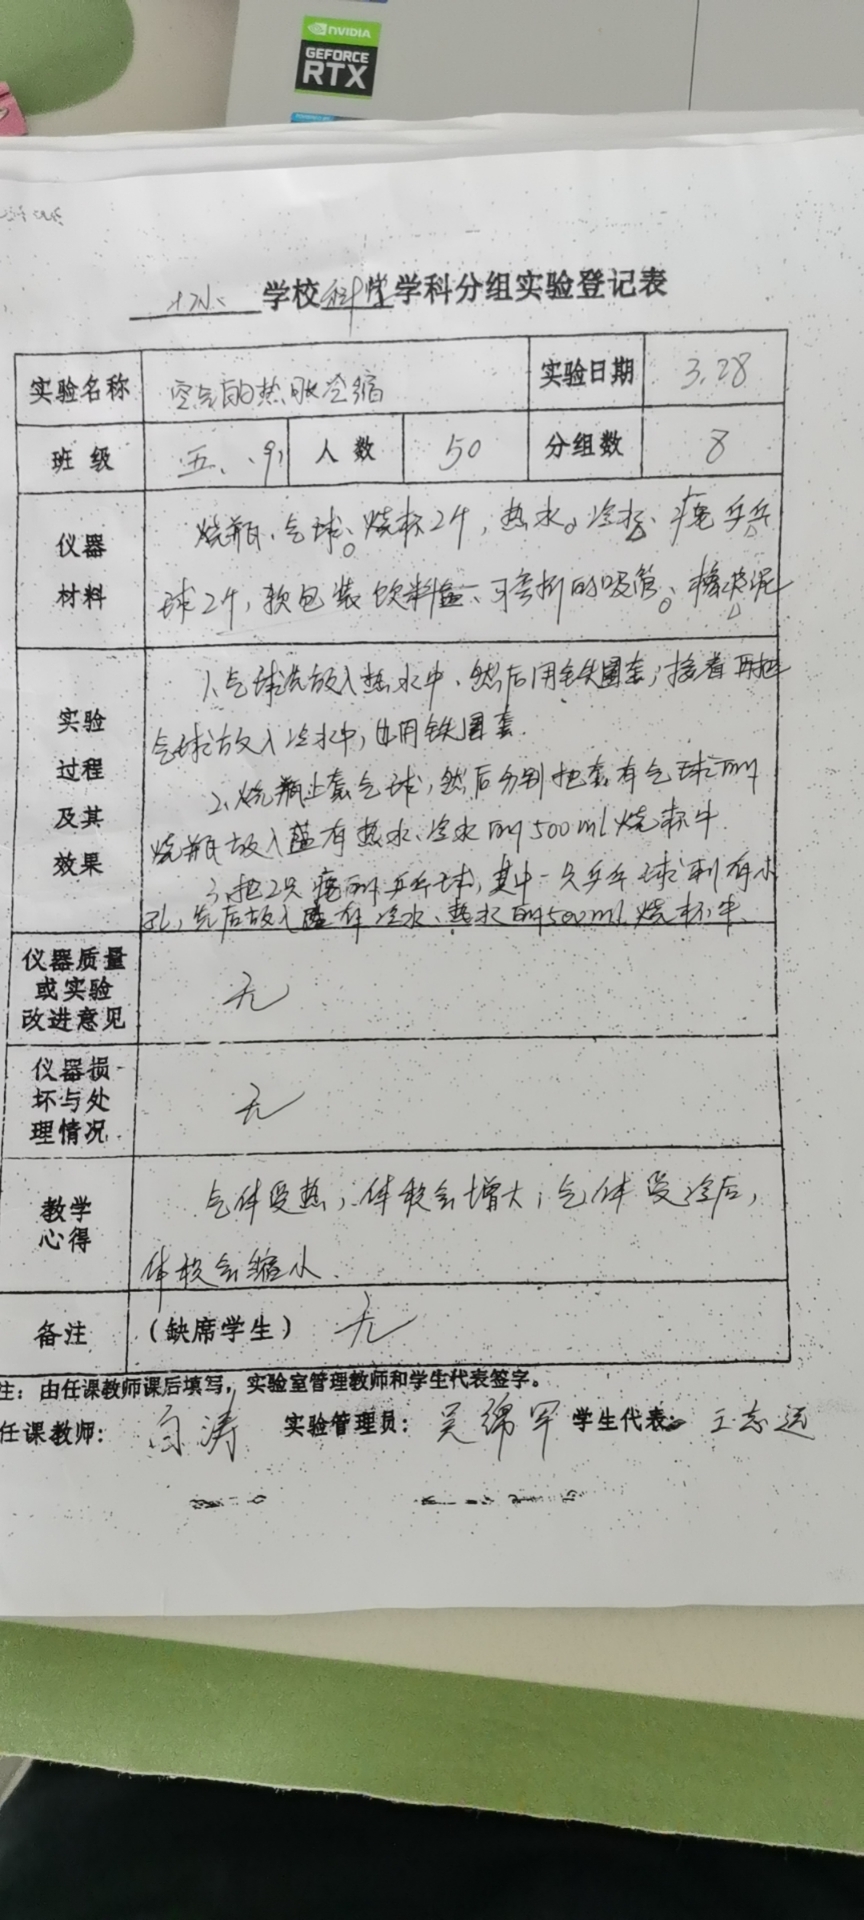 NVIDIA
GEFORCE
RTX
学校科学学科分组实验登记表
实验名称 空气的热胀冷缩 实验日期 3.28
班级 五、 人数 50 分组数 8
仪器材料
烧瓶、气球、烧杯2个,热水、冷水、瘪乒乓
球2个,软包装饮料盒、可弯折的吸管、橡皮泥
实验过程及其效果
1、气球先放入热水中、然后用铁圈套;接着再把
气球放入冷水中,也用铁圈套.
2、烧瓶上套气球,然后分别把套有气球的
烧瓶放入盛有热水、冷水的500ml烧杯中.
3、把2只瘪的乒乓球,其中一只乒乓球刺有小
孔,先后放入盛有冷水、热水的500ml烧杯中.
仪器质量或实验改进意见 无
仪器损坏与处理情况 无
教学心得
气体受热,体积会增大;气体受冷后,
体积会缩小.
备注 (缺席学生) 无
注:由任课教师课后填写,实验室管理教师和学生代表签字。
任课教师: 白涛 实验管理员: 吴 学生代表: 王志远